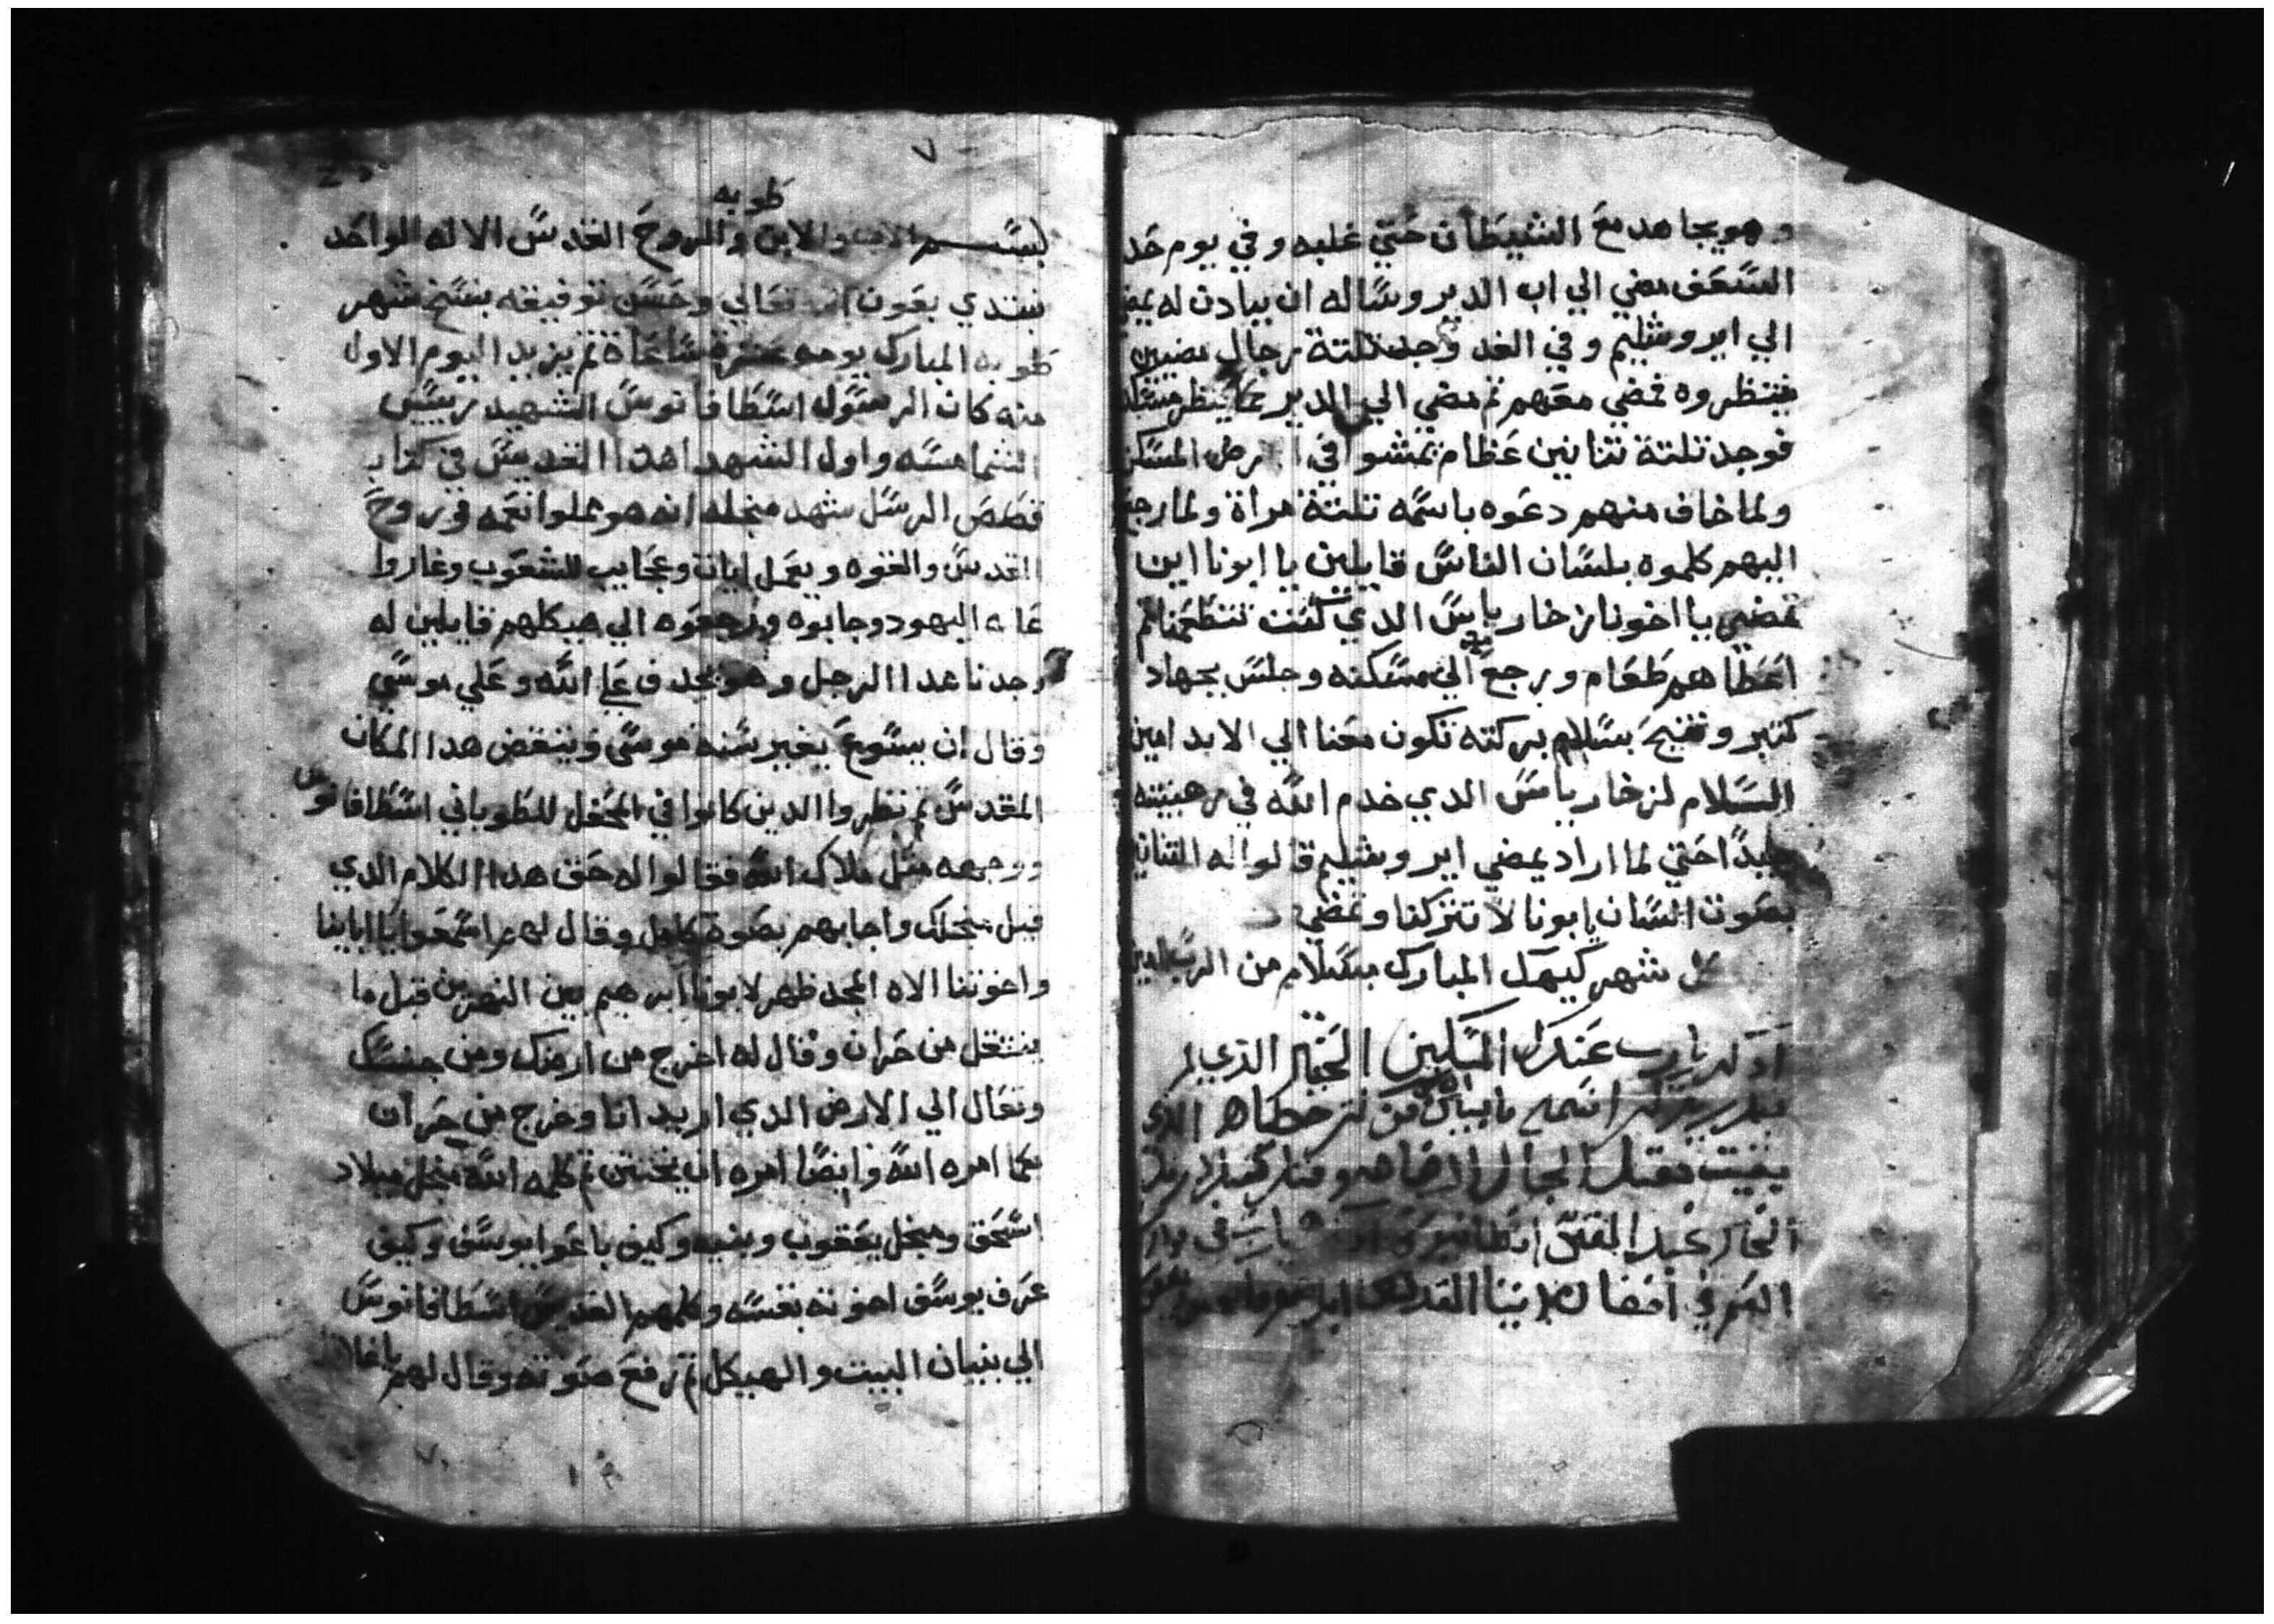 وهو يجاهد مع الشيطان حتي غلبه وفي يوم حد
السعف مضي الي اب الدير وساله ان يبادن له يمض
الي ايروشليم وفي الغد وجد تلتة رجال مضيين
فنتظروه يمضي معهم تم مضي الي الدير
فوجد تلتة تنانين عظام يمشوا في المسكن
ولما خاف منهم دعوه باسمه تلتة مراة ولما رجع
اليهم كلموه بلسان الناس قايلين يا ابونا اين
تمضي يا اخونا زخارياس الدي كنت تطعمنا تم
اعطاهم طعام ورجع الي مسكنه وجلس بجهاد
كتير وتنيح بسلام بركته تكون معنا الي الابد امين
السلام لزخارياس الدي خدم الله في رهبنته
جيدًا حتي لما اراد يمضي ايروشليم قالوا له التنانين
بصوت السان يابونا لا تتركنا وتمضي
كمل شهر كيهك المبارك بسلام من الرب امين
ادكر يارب عبدك المسكين الحقير الذي لم
اسمه من كتر خطاه الذي
٧
طوبه
بسم الاب والابن والروح القدس الاله الواحد
نبتدي بعون الله تعالي وحسن توفيقه بنسخ شهر
طوبه المبارك يومه عشرة ساعاة تم يزيد اليوم الاول
منه كان الرسول اسطافانوس الشهيد رييس
الشمامسه واول الشهدا هدا القديس في كتاب
قصص الرسل شهد منجله انه هو مملوا نعمه وروح
القدس والقوه ويعمل ايات وعجايب للشعوب وغاروا
عليه اليهود وجابوه ورجعوه الي هيكلهم قايلين له
وجدنا هدا الرجل وهو يجدف علي الله وعلي موسي
وقال ان يسوع يغير سنه موسي وينقض هدا المكان
المقدس تم نظروا الدين كانوا في المحفل للطوباني اسطافانوس
ووجهه متل ملاك الله فقالوا له حق هدا الكلام الدي
قيل منجلك واجابهم بصوة كامل وقال لهم اسمعوا يا اباينا
واخوتنا الاه المجد ظهر لابونا ابرهيم بين النهرين قبل ما
ينتقل من حران وقال له اخرج من ارضك ومن جنسك
وتعال الي الارض الدي اريد انا وخرج من حران
كما امره الله وايضًا امره ان يختتن تم كلمه الله منجل ميلاد
اسحق ومنجل يعقوب وبنيه وكيف باعوا يوسف وكيف
عرف يوسف اخوته بنفسه وكلمهم القديس اسطافانوس
الي بنيان البيت والهيكل تم رفع صوته وقال لهم